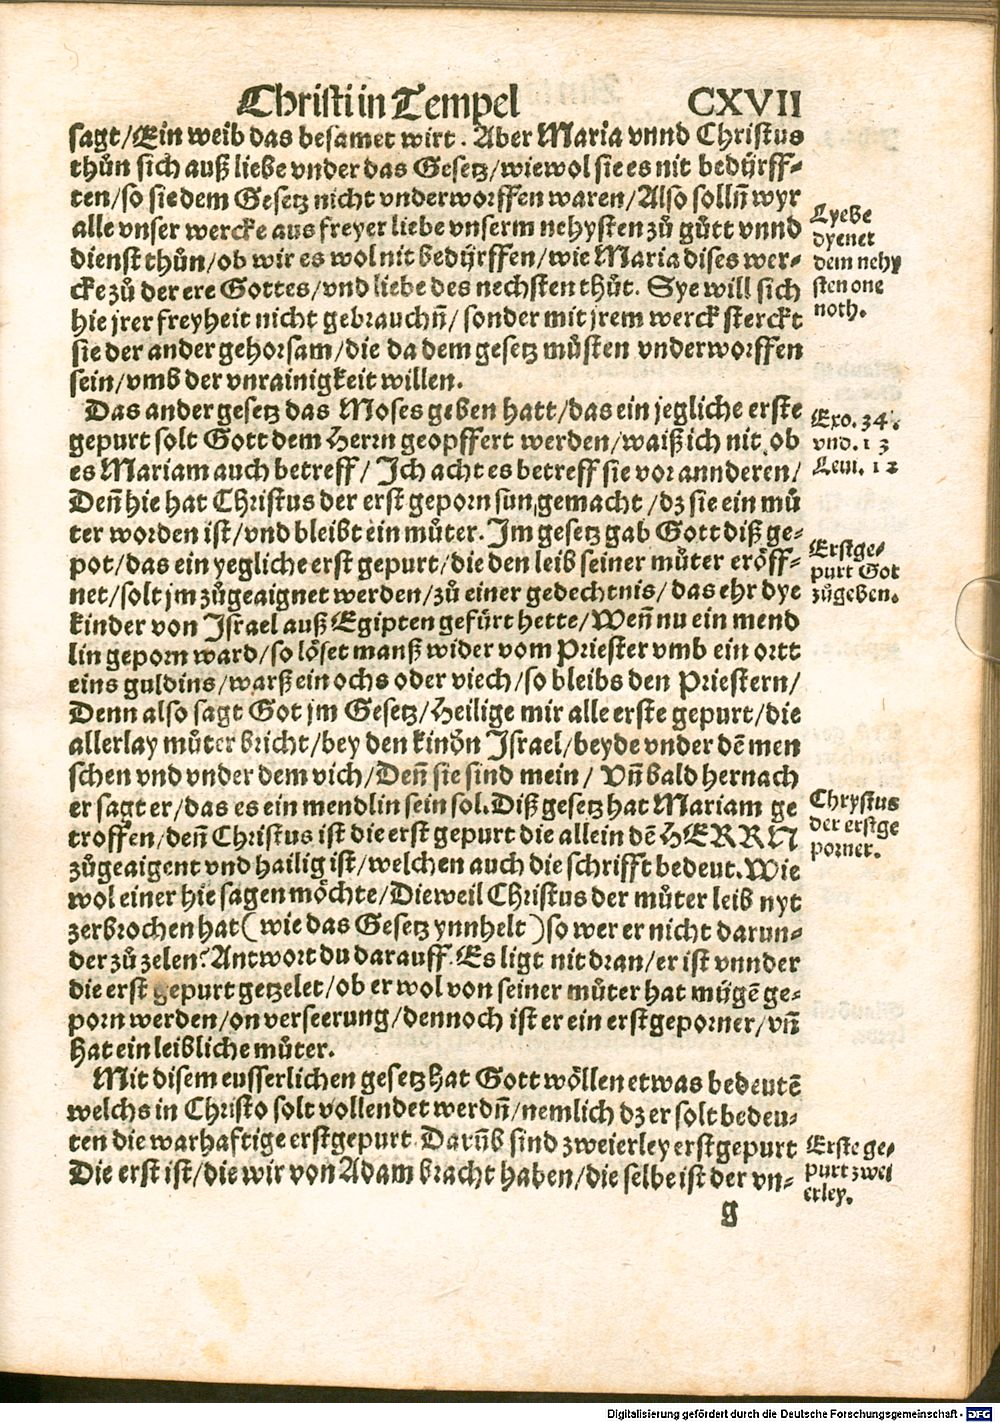 Christi in Tempel CXVII
sagt/Ein weib das besamet wirt. Aber Maria vnnd Christus
thůn sich auß liebe vnder das Gesetz/wiewol sie es nit bedürff⸗
ten/so sie dem Gesetz nicht vnderworffen waren/Also solln̄ wyr
alle vnser wercke aus freyer liebe vnserm nehysten zů gůtt vnnd
dienst thůn/ob wir es wol nit bedürffen/wie Maria dises wer⸗
cke zů der ere Gottes/vnd liebe des nechsten thůt. Sye will sich
hie jrer freyheit nicht gebrauchn̄/sonder mit jrem werck sterckt
sie der ander gehorsam/die da dem gesetz můsten vnderworffen
sein/vmb der vnrainigkeit willen.
Lyebe
dyenet
dem nehy
sten one
noth.
Das ander gesetz das Moses geben hatt/das ein jegliche erste
gepurt solt Gott dem Herrn geopffert werden/waiß ich nit ob
es Mariam auch betreff/Ich acht es betreff sie vor annderen/
Deñ hie hat Christus der erst geporn sun gemacht/dz sie ein mů
ter worden ist/vnd bleibt ein můter. Im gesetz gab Gott diß ge⸗
pot/das ein yegliche erst gepurt/die den leib seiner můter eröff⸗
net/solt jm zůgeaignet werden/zů einer gedechtnis/das ehr dye
kinder von Israel auß Egipten gefürt hette/Weñ nu ein mend
lin geporn ward/so löset manß wider vom Priester vmb ein ortt
eins guldins/warß ein ochs oder viech/so bleibs den Priestern/
Denn also sagt Got jm Gesetz/Heilige mir alle erste gepurt/die
allerlay můter bricht/bey den kindn Israel/beyde vnder dē men
schen vnd vnder dem vich/Deñ sie sind mein/Vñ bald hernach
er sagt er/das es ein mendlin sein sol. Diß gesetz hat Mariam ge
troffen/deñ Christus ist die erst gepurt die allein dē HERRN
zůgeaigent vnd hailig ist/welchen auch die schrifft bedeut. Wie
wol einer hie sagen möchte/Dieweil Christus der můter leib nyt
zerbrochen hat(wie das Gesetz ynnhelt)so wer er nicht darun⸗
der zů zelen? Antwort du darauff. Es ligt nit dran/er ist vnnder
die erst gepurt getzelet/ob er wol von seiner můter hat mügē ge⸗
porn werden/on verseerung/dennoch ist er ein erstgeporner/vñ
hat ein leibliche můter.
Exo. 34.
vnd. 13
Leui. 12
Erstge⸗
purt Got
zůgeben.
Chrystus
der erstge
porner.
Mit disem eusserlichen gesetz hat Gott wöllen etwas bedeutē
welchs in Christo solt vollendet werdn̄/nemlich dz er solt bedeu⸗
ten die warhaftige erstgepurt. Darūb sind zweierley erstgepurt
Die erst ist/die wir von Adam bracht haben/die selbe ist der vn⸗
Erste ge⸗
purt zwei
erley.
g
Digitalisierung gefördert durch die Deutsche Forschungsgemeinschaft - DFG